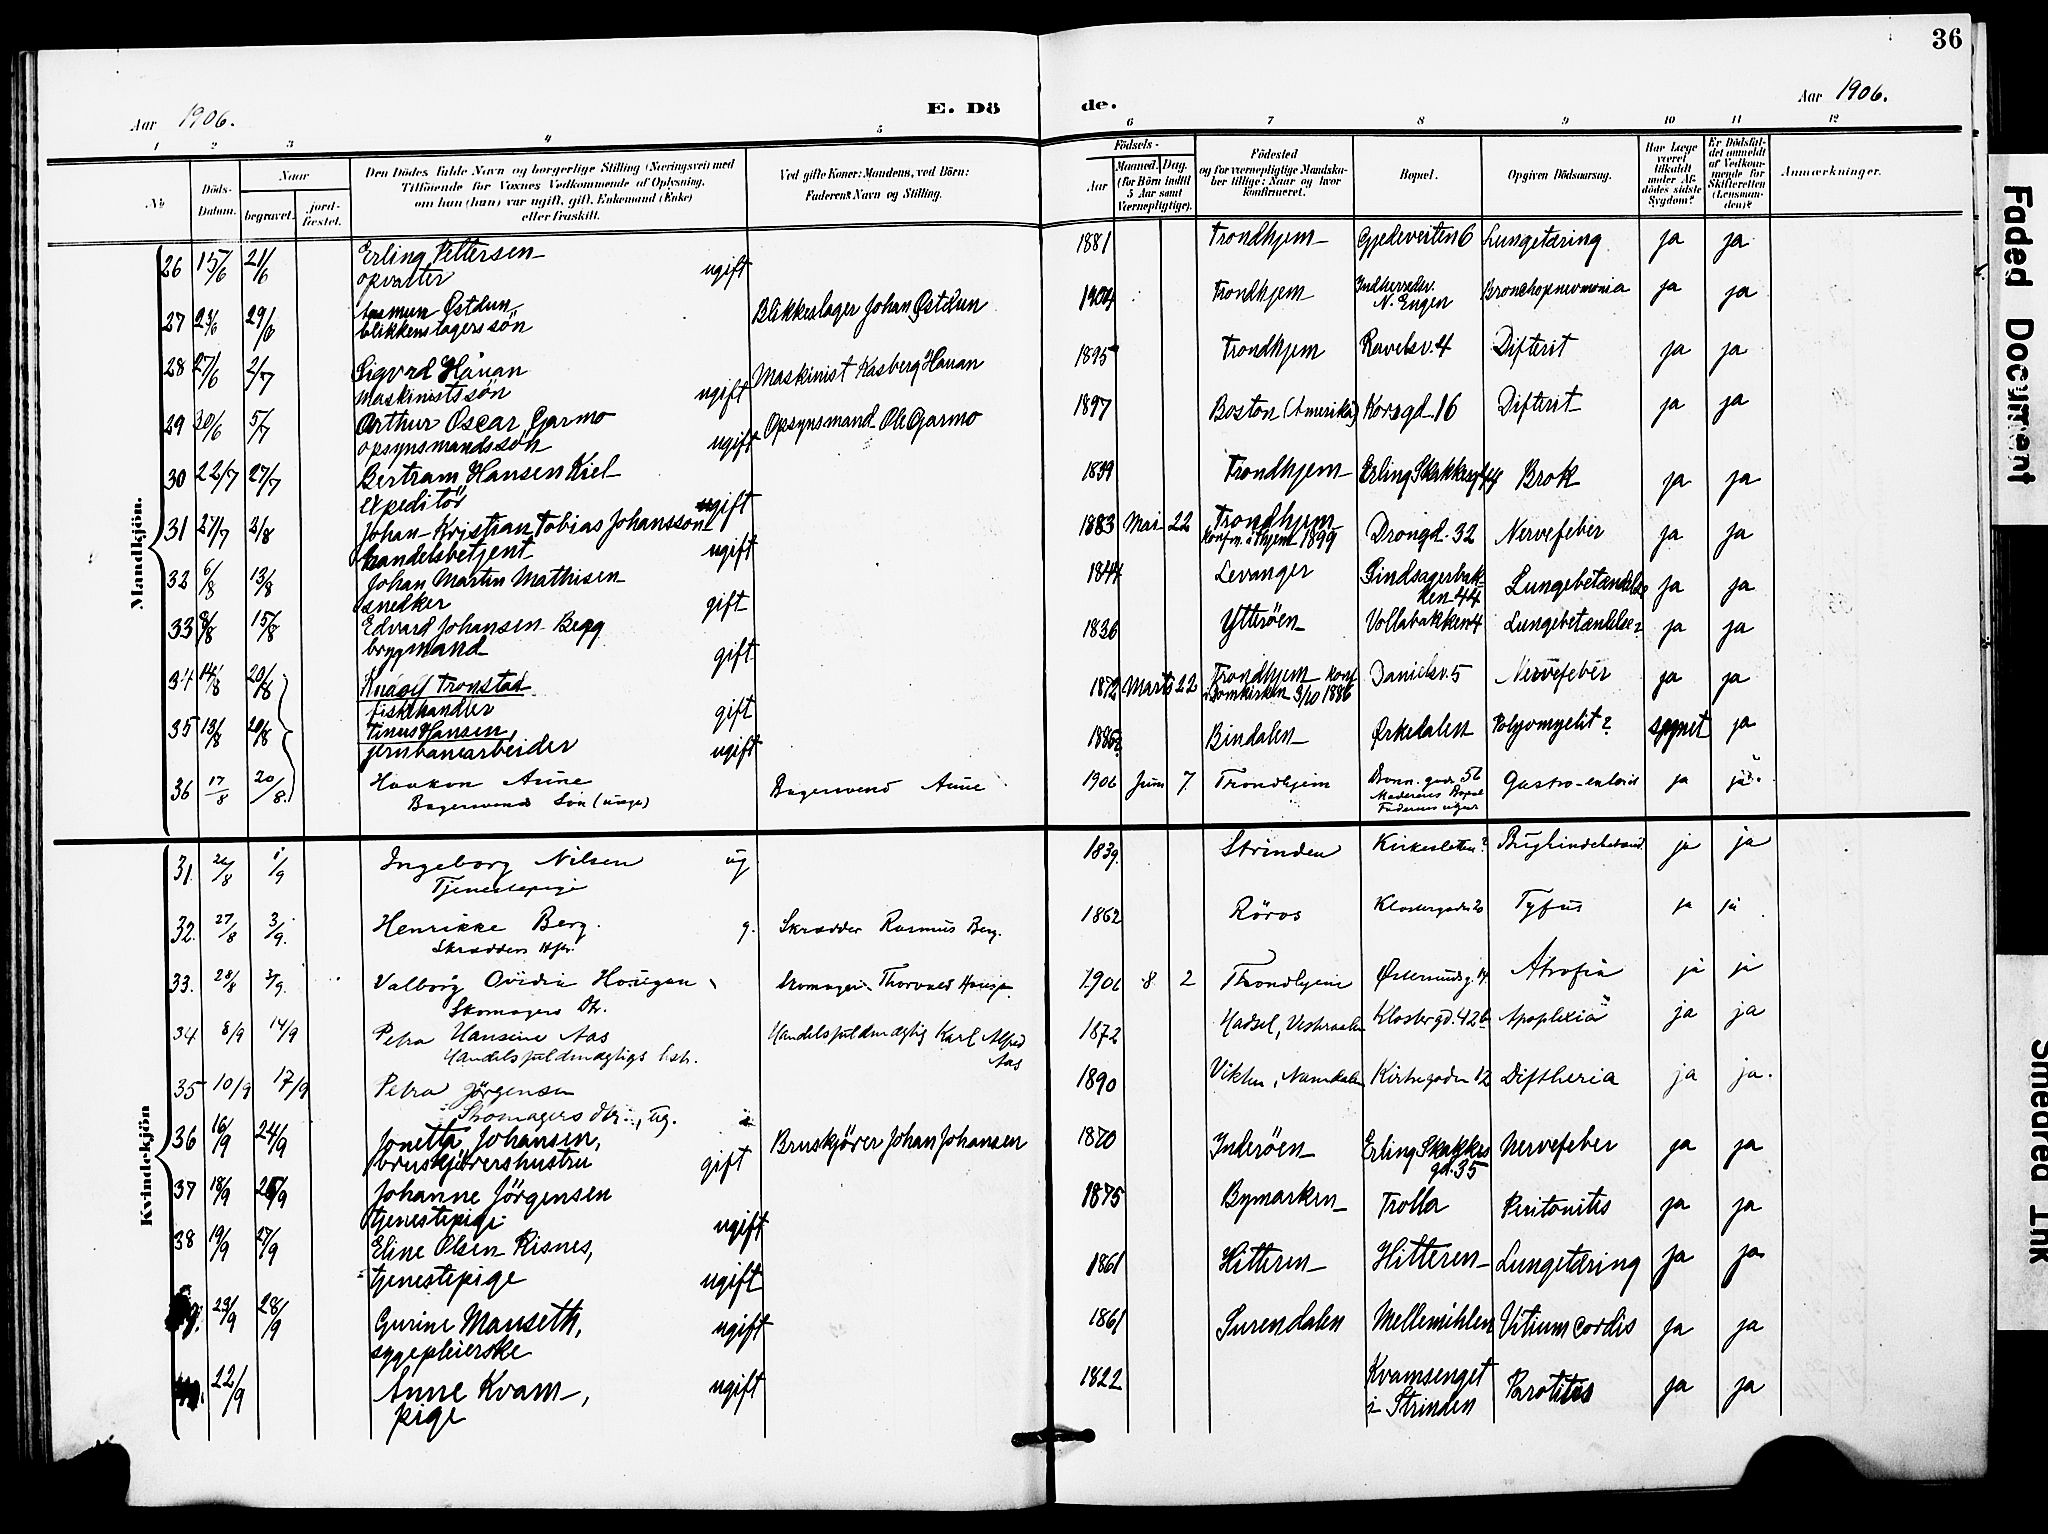 36
Aar 1906.
E. Dö
de.
Aar 1906.
1 2 3 4 5 6 7 8 9 10 11 12
No
Döds-Datum.
Naar
begravet.
jord-fæstet.
Den Dödes fulde Navn og borgerlige Stilling (Næringsvei) med
Tilföiende for Voxnes Vedkommende af Oplysning,
om han (hun) var ugift, gift, Enkemand (Enke)
eller fraskilt.
Ved gifte Koner: Mandens, ved Börn:
Faderens Navn og Stilling.
Födsels-
Aar
Maaned. Dag.
(for Börn indtil 5 Aar samt Værnepligtige).
Födested
og for værnepligtige Mandska-
ber tillige: Naar og hvor
konfirmeret.
Bopæl.
Opgiven Dödsaarsag.
Har Læge været tilkaldt under Af-dödes sidste Sygdom?
Er Dödsfal-det anmeldt af Vedkom-mende for Skifteretten (Lensman-den)?
Anmærkninger.
Mandkjön.
26 15/6 21/6 Erling Pettersen opvarter ugift 1881 Trondhjem Gjedeveiten 6 Lungetæring ja ja
27 23/6 29/6 Østdun blikkenslagerssön Blikkeslager Johan Østdun 1904 Trondhjem N. Engen Bronchopneumonia ja ja
28 27/6 2/7 Sigvrd Hånan maskinistssön ugift Maskinist Kasberg Hanan 1895 Trondhjem Ravelsv. 4 Difterit ja ja
29 30/6 5/7 Arthur Oscar Garmo opsynsmandssön ugift Opsynsmand Ole Garmo 1897 Boston (Amerika) Korsgd. 16 Difterit ja ja
30 22/7 27/7 Bertram Hansen Kiel expeditör gift 1839 Trondhjem Erling Skakkesgd Brok ja ja
31 27/7 2/8 Johan Kristian Tobias Johansson handelsbetjent ugift 1883 Mai 22 Trondhjem konfm. i Thjem 1899 Drongd. 32 Nervefeber ja ja
32 6/8 13/8 Johan Martin Mathisen snedker gift 1844 Levanger Sindsagerbakken 44 Lungebetændelse ja ja
33 8/8 15/8 Edvard Johansen Berg brygmand gift 1836 Ytterøen Vollabakken 4 Lungebetændelse ja ja
34 14/8 20/8 Tronstad fiskehandler gift 1872 Marts 22 Trondhjem konf i Domkirken 3/10 1886 Danielsv. 5 Nervefeber ja ja
35 13/8 20/8 Tinus Hansen, jernbanearbeider ugift Bindalen Ørkedalen Polyomyelit? synet ja
36 17/8 20/8 Haakon Aune Bagersvend Søn (uægt) Bagersvend Aune 1906 Juni 7 Trondhjem Dronn. gade 56 Moderens Bopæl Gastro-enterit ja ja.
Kvindekjön
31. 26/8 1/9 Ingeborg Nilsen Tjenestepige ug 1839. Strinden Kirkesletten? ja ja
32. 27/8 3/9. Henrikke Berg. Skrædders Hstr. g. Skrædder Rasmus Berg. 1862 Röros Klostergaden 20 Tyfus ja ja
33. 28/8 3/9. Valborg Ovidia Skomagers Dtr. Skomager Thorvald 1906 8 2 Trondhjem Østersundsg. 14. Atrofia ja ja
34 8/9 14/9 Petra Hansine Aas Handelsfuldmægtigs hstr. Handelsfuldmægtig Karl Alfred Aas 1872 Hadsel, Vesteraalen Klostergd. 42b Apoplexia ja ja
35 10/9 17/9 Petra Jörgensen Skomagers dtr., ug. 1890 Vikten, Namdalen Kirkegaden 12 Diftheria ja ja.
36 16/9 24/9 Jonetta Johansen, bruskjörershustru gift Bruskjører Johan Johansen 1870 Inderøen Erling Skakkes gd. 35 Nervefeber ja ja
37 18/9 Johanne Jörgensen tjenestepige ugift 1875 Bymarken Trolla Peritonitis ja ja
38 19/9 27/9 Eline Olsen Risnes, tjenestepige ugift 1861 Hitteren Hitteren Lungetæring ja ja
23/9 28/9 Gurine Mauseth, sygepleierske ugift 1861 Surendalen Mellemihlen Vitium cordis ja ja
22/9 Anne Kvam, pige ugift 1822 Kvamsenget i Strinden Parotitis ja ja
Faded Document
Smeared Ink